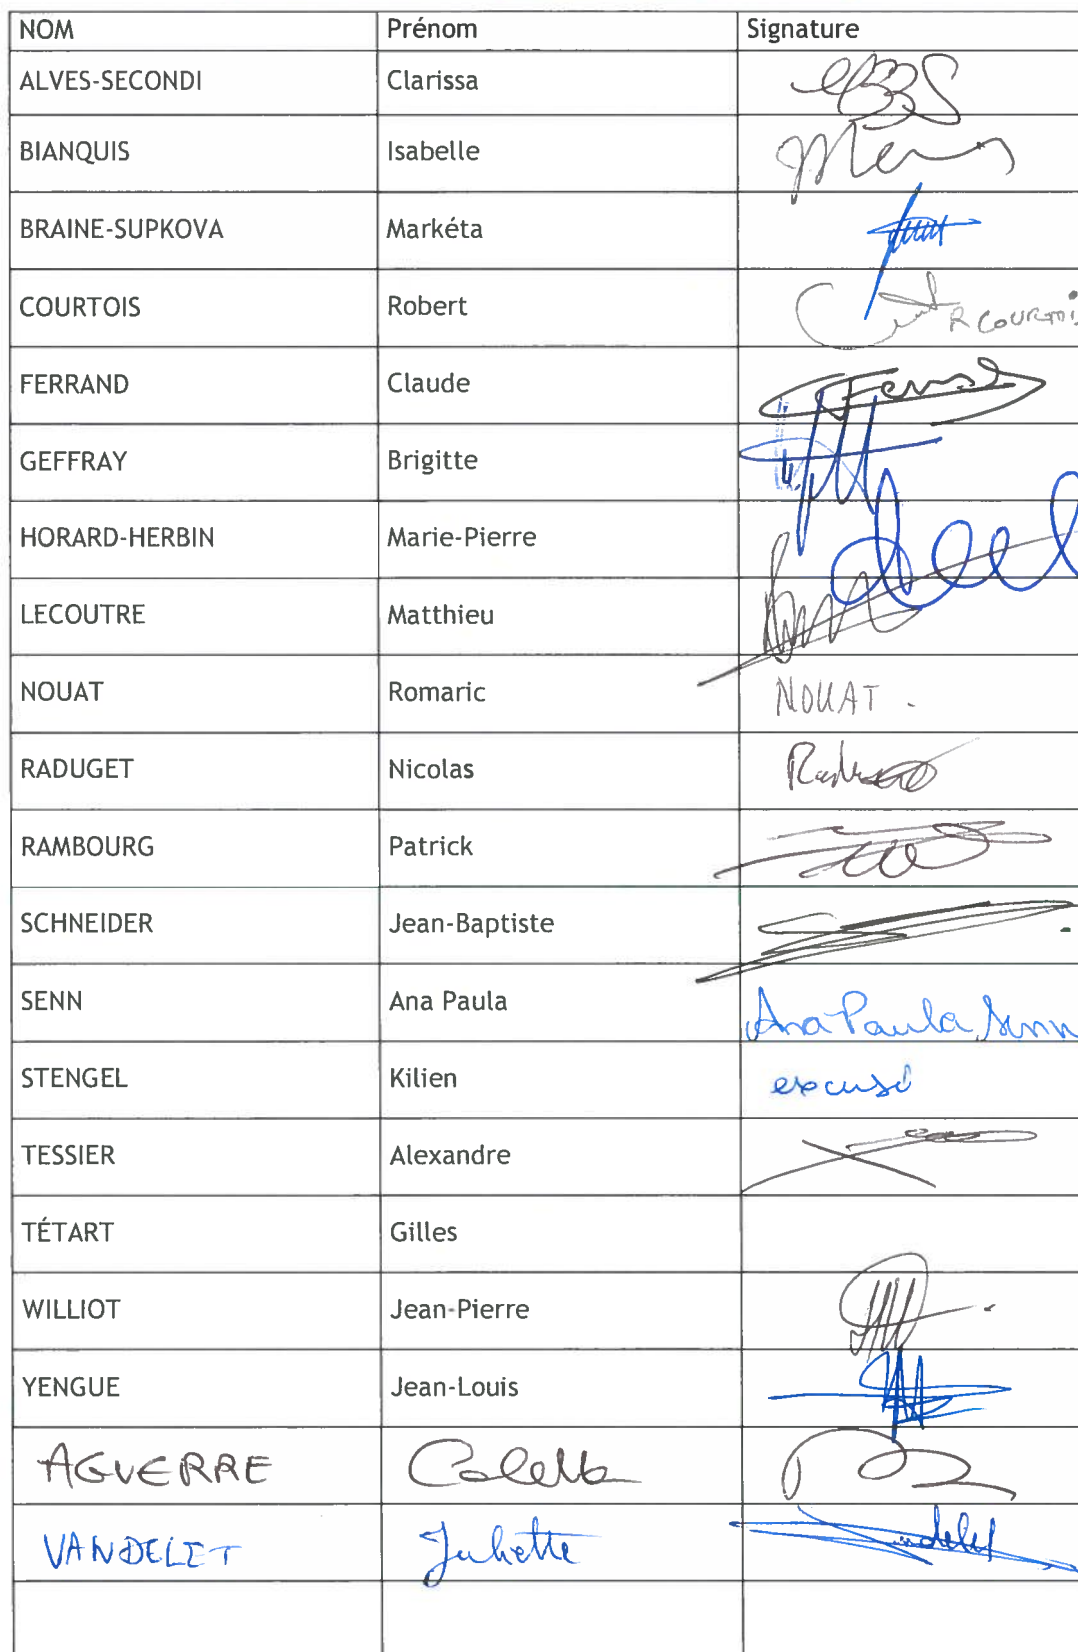 NOM Prénom Signature
ALVES-SECONDI Clarissa
BIANQUIS Isabelle
BRAINE-SUPKOVA Markéta
COURTOIS Robert R COURTOIS
FERRAND Claude Ferrand
GEFFRAY Brigitte
HORARD-HERBIN Marie-Pierre
LECOUTRE Matthieu
NOUAT Romaric NOUAT.
RADUGET Nicolas
RAMBOURG Patrick
SCHNEIDER Jean-Baptiste
SENN Ana Paula Ana Paula Senn
STENGEL Kilien excusé
TESSIER Alexandre
TÉTART Gilles
WILLIOT Jean-Pierre
YENGUE Jean-Louis
AGUERRE Colette
VANDELET Juliette Vandelet